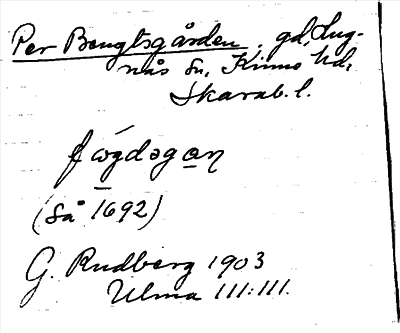 Per Bengtsgården, gd, Lug-
nås sn, Kinne hd,
Skarab. l.
(så 1692)
G. Rudberg 1903
Ulma 111:111.